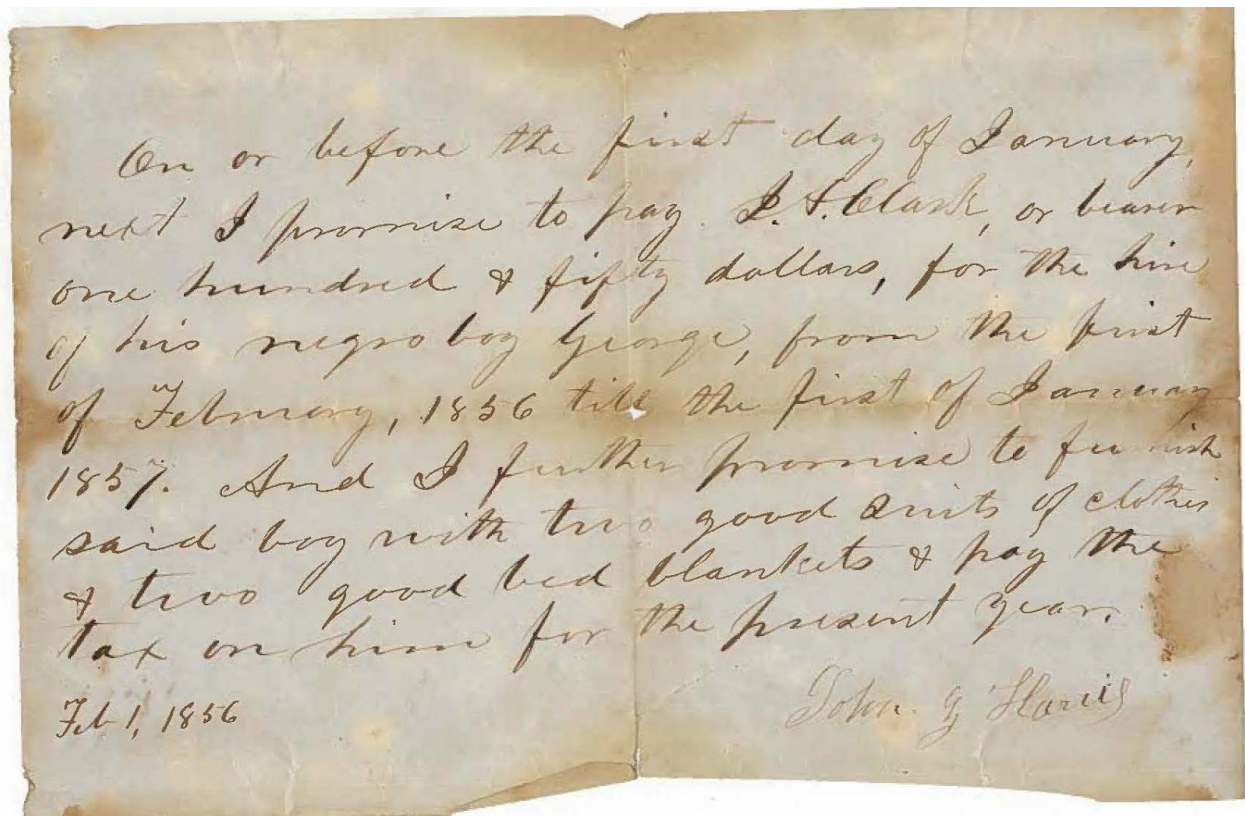 On or before the first day of January,
next I promise to pay J. S. Clark, or bearer
one hundred & fifty dollars, for the hire
of his negro boy George, from the first
of February, 1856 till the first of January
1857. And I further promise to furnish
said boy with two good suits of clothes
& two good bed blankets & pay the
tax on him for the present year.
Feb 1, 1856
John G Harris